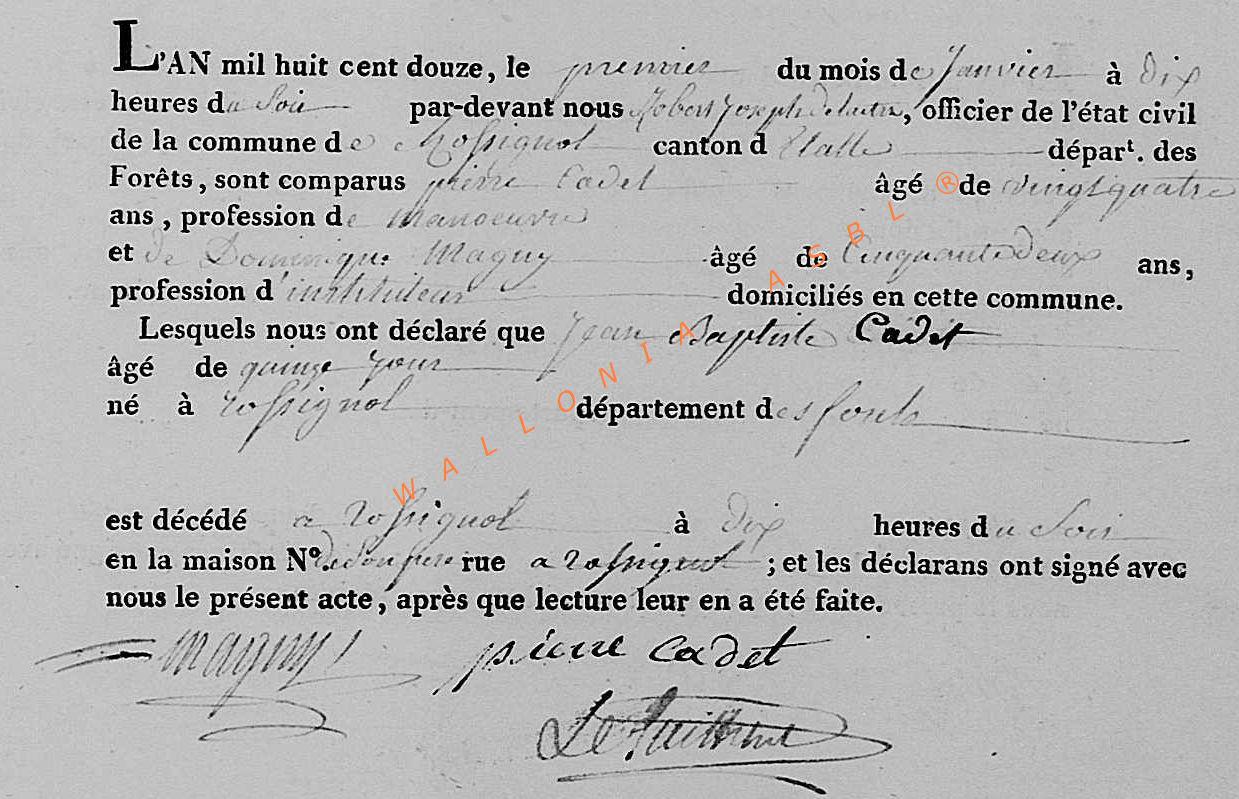 L'AN mil huit cent douze, le premier du mois de Janvier à dix
heures du Soir par-devant nous Robert Joseph, officier de l'état civil
de la commune de Rossignol canton d Etalle dépar<sup>t</sup>. des
Forêts, sont comparus pierre Cadet âgé de vingtquatre
ans, profession de manoeuvre
et de Dominique Maguy âgé de Cinquante deux ans,
profession d'instituteur domiciliés en cette commune.
Lesquels nous ont déclaré que Jean Baptiste Cadet
âgé de quinze jour
né à rossignol département des forets
est décédé a rossignol à dix heures du Soir
en la maison Nº. de son pere rue a rossignol ; et les déclarans ont signé avec
nous le présent acte, après que lecture leur en a été faite.
maguy pierre cadet
WALLONIA ASBL ®